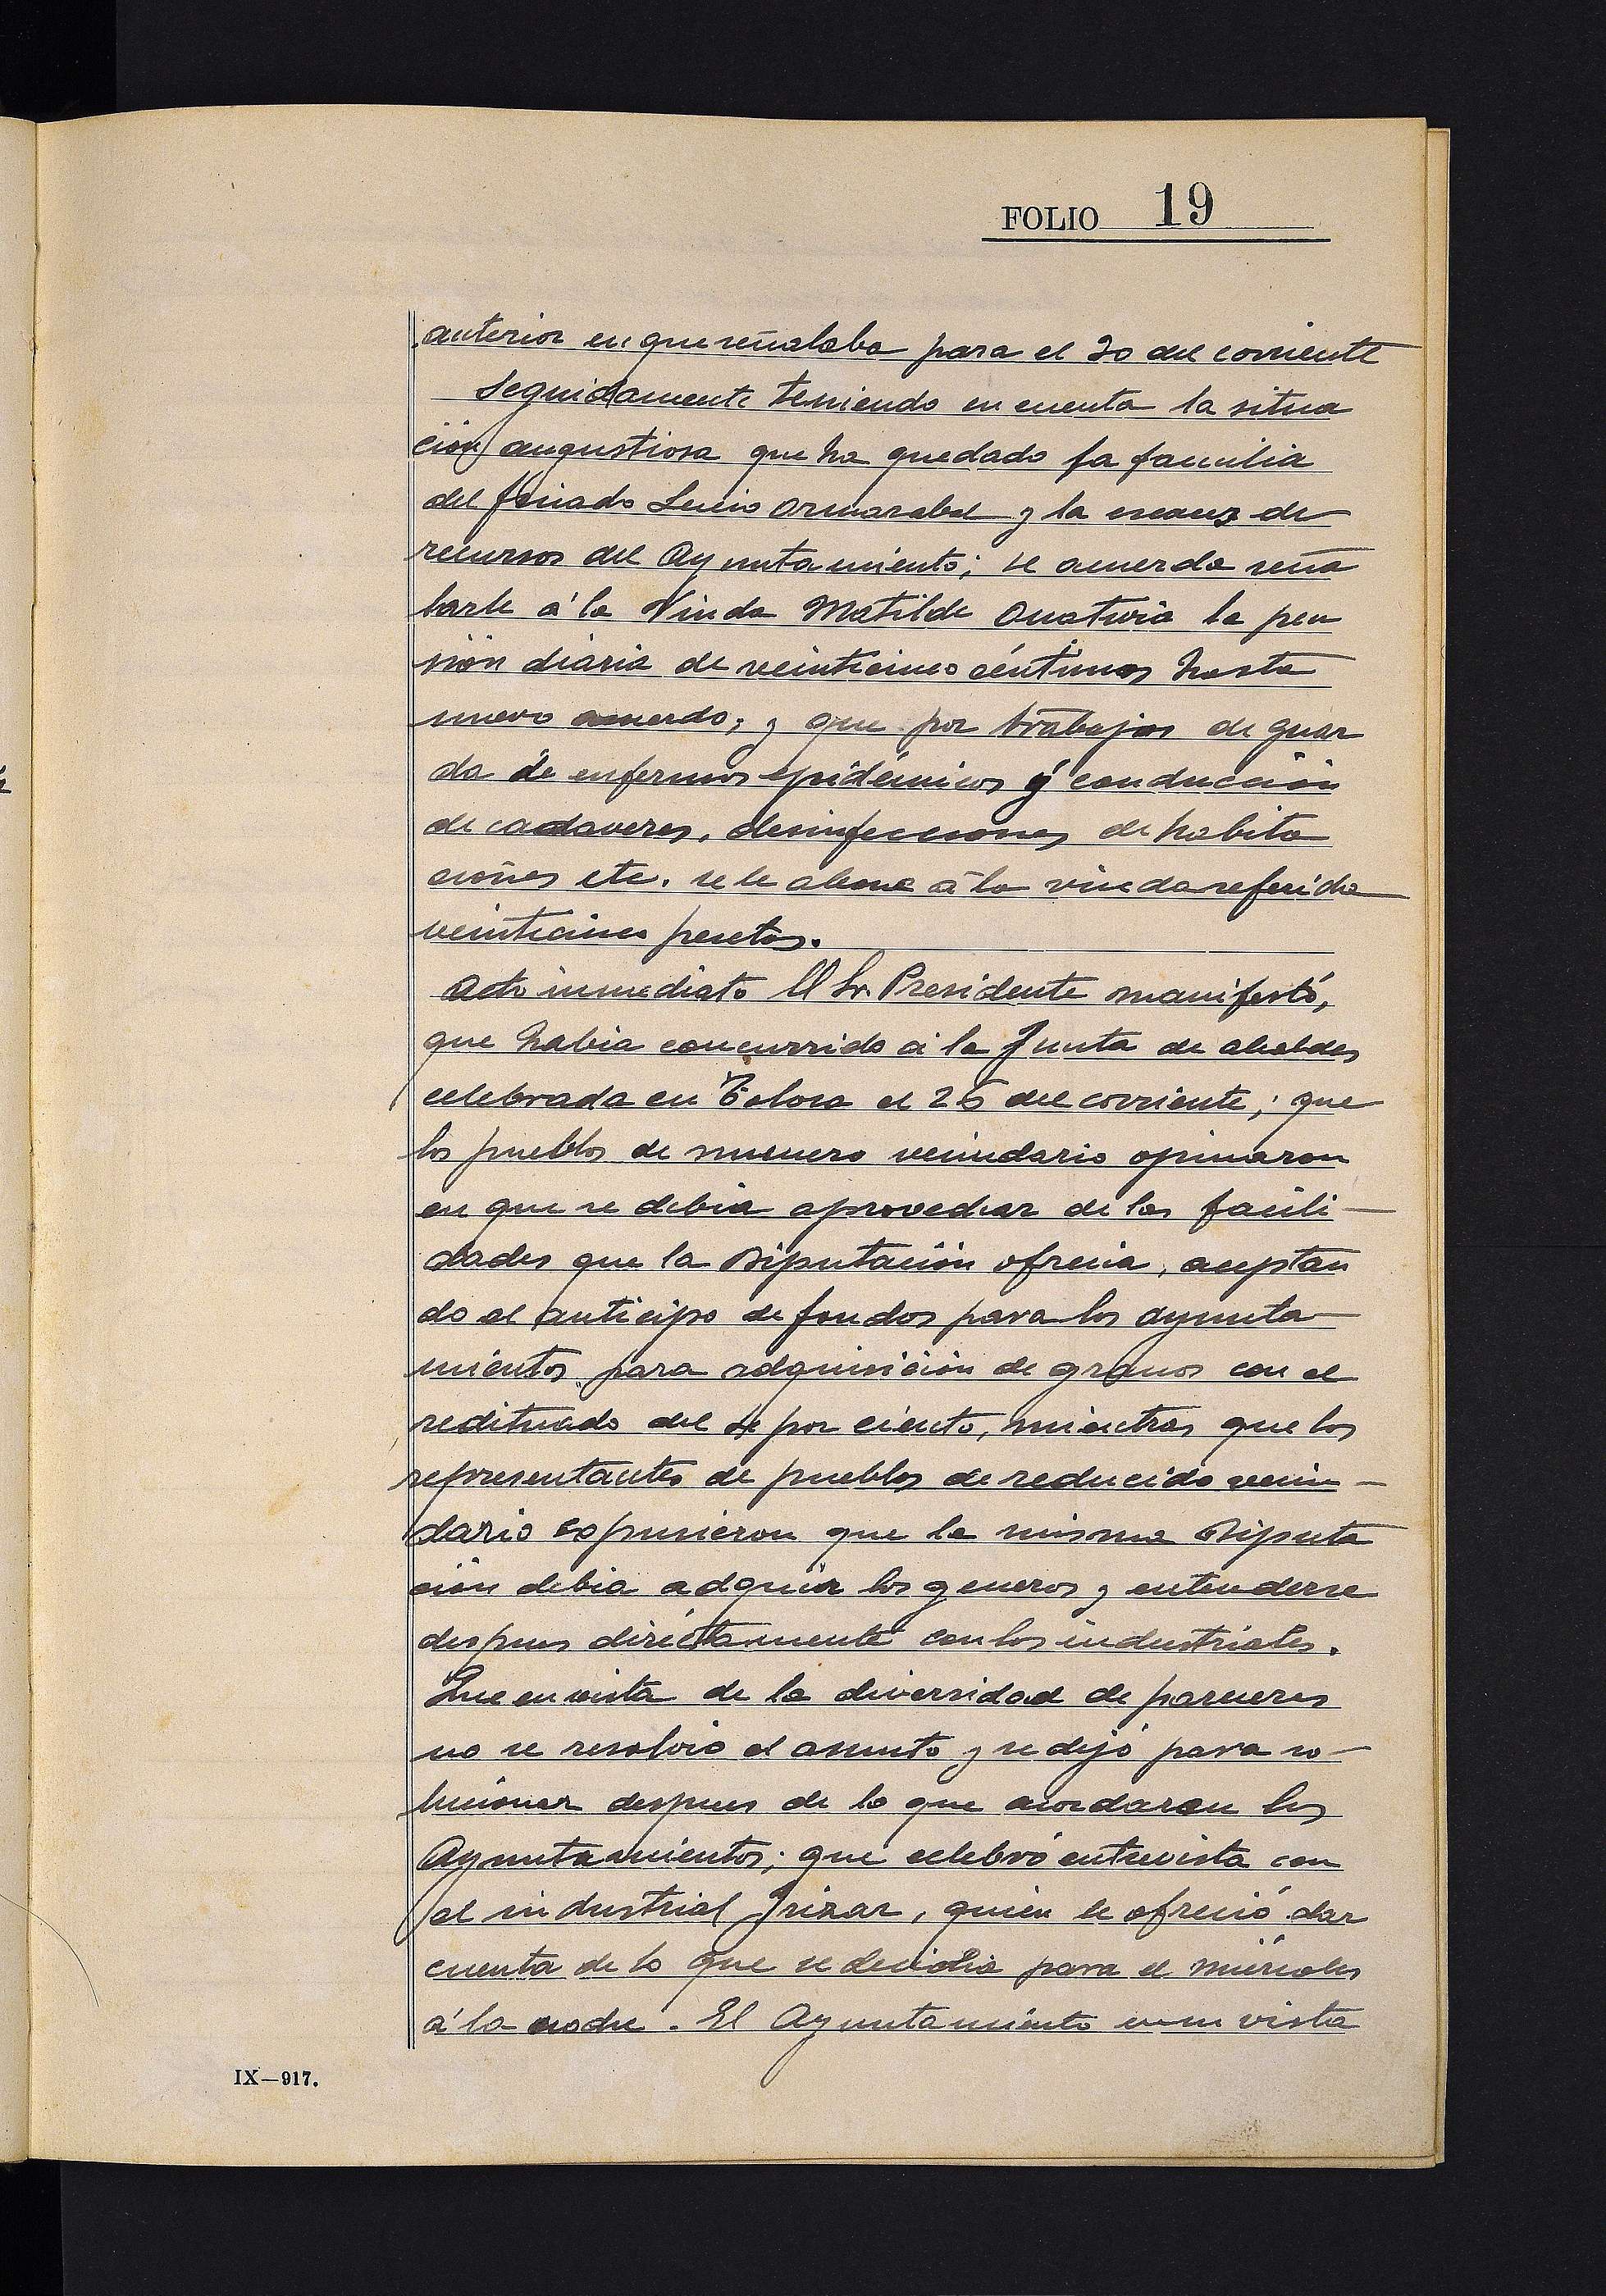 FOLIO 19
anterior en que señalaba para el 20 del corriente
Seguidamente teniendo en cuenta la situa
ción angustiosa que ha quedado la familia
del finado Lucio Ormazabal y la escasez de
recursos del Ayuntamiento; se acuerda seña
larle á la Viuda Matilde Onaturia la pen
sión diaria de veinticinco céntimos hasta
nuevo acuerdo; y que por trabajos de guar
da de enfermos epidémicos y conducción
de cadaveres, desinfecciones de habita
ciones etc. se le abone á la viuda referida
veinticinco pesetas.
Acto inmediato El Sr. Presidente manifestó,
que habia concurrido á la Junta de alcaldes
celebrada en Tolosa el 26 del corriente; que
los pueblos de numero vecindario opinaron
en que se debia aprovechar de las facili-
dades que la Diputación ofrecia, aceptan
do el anticipo de fondos para los ayunta-
mientos para adquisición de granos con el
redituado del 4 por ciento, mientras que los
representantes de pueblos de reducido vecin-
dario expusieron que la misma Diputa
ción debia adquirir los generos y entenderse
despues diréctamente con los industriales.
Que en vista de la diversidad de pareceres
no se resolvió el asunto y se dejó para so-
lucionar despues de lo que acordaran los
Ayuntamientos; que celebró entrevista con
el industrial Irizar, quien le ofreció dar
cuenta de lo que se decidia para el miércoles
á la noche. El Ayuntamiento en su vista
IX—917.